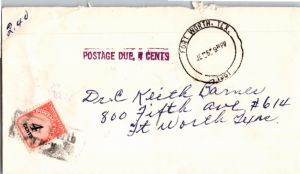 2.40
POSTAGE DUE, 4 CENTS
FORT WORTH, TEX.
Dr C Keith Barnes
800 Fifth ave #614
Ft Worth Texas
4